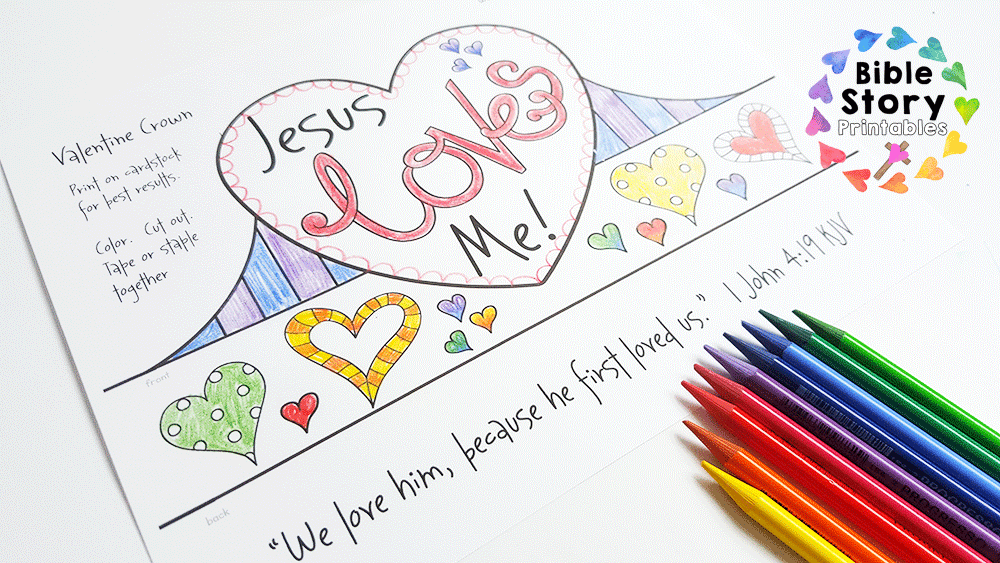 Valentine Crown
Print on cardstock
for best results.
Color. Cut out.
Tape or staple
together
Jesus
loves
Me!
front
back
"We love him, because he first loved us." 1 John 4:19 KJV
Bible
Story
Printables